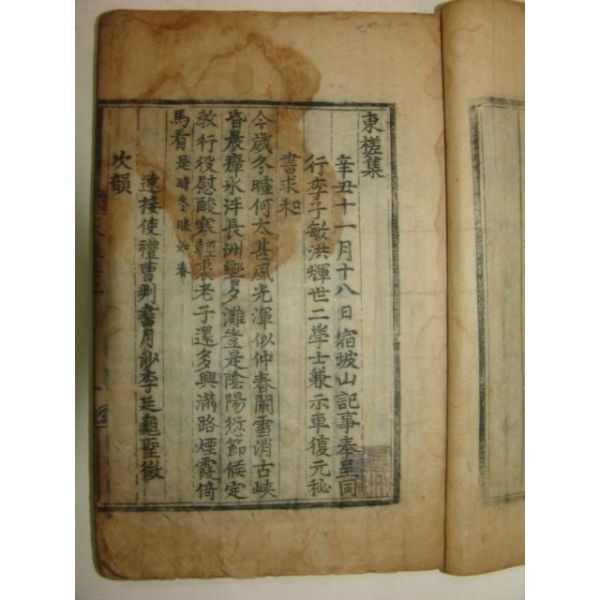 東槎集
辛丑十一月十八日宿坡山記事奉呈同
行李子敏洪輝世二學士兼示車復元秘
書求和
今歲冬暄何太甚風光渾似仲春闌雪消古峽
昏晨瘴氷泮長洲響夕灘豈是陰陽愆節候定
敎行役慰酸寒輕裘老子還多興滿路煙霞倚
馬看是時冬暖如春
次韻
遠接使禮曹判書月沙李廷龜聖徵